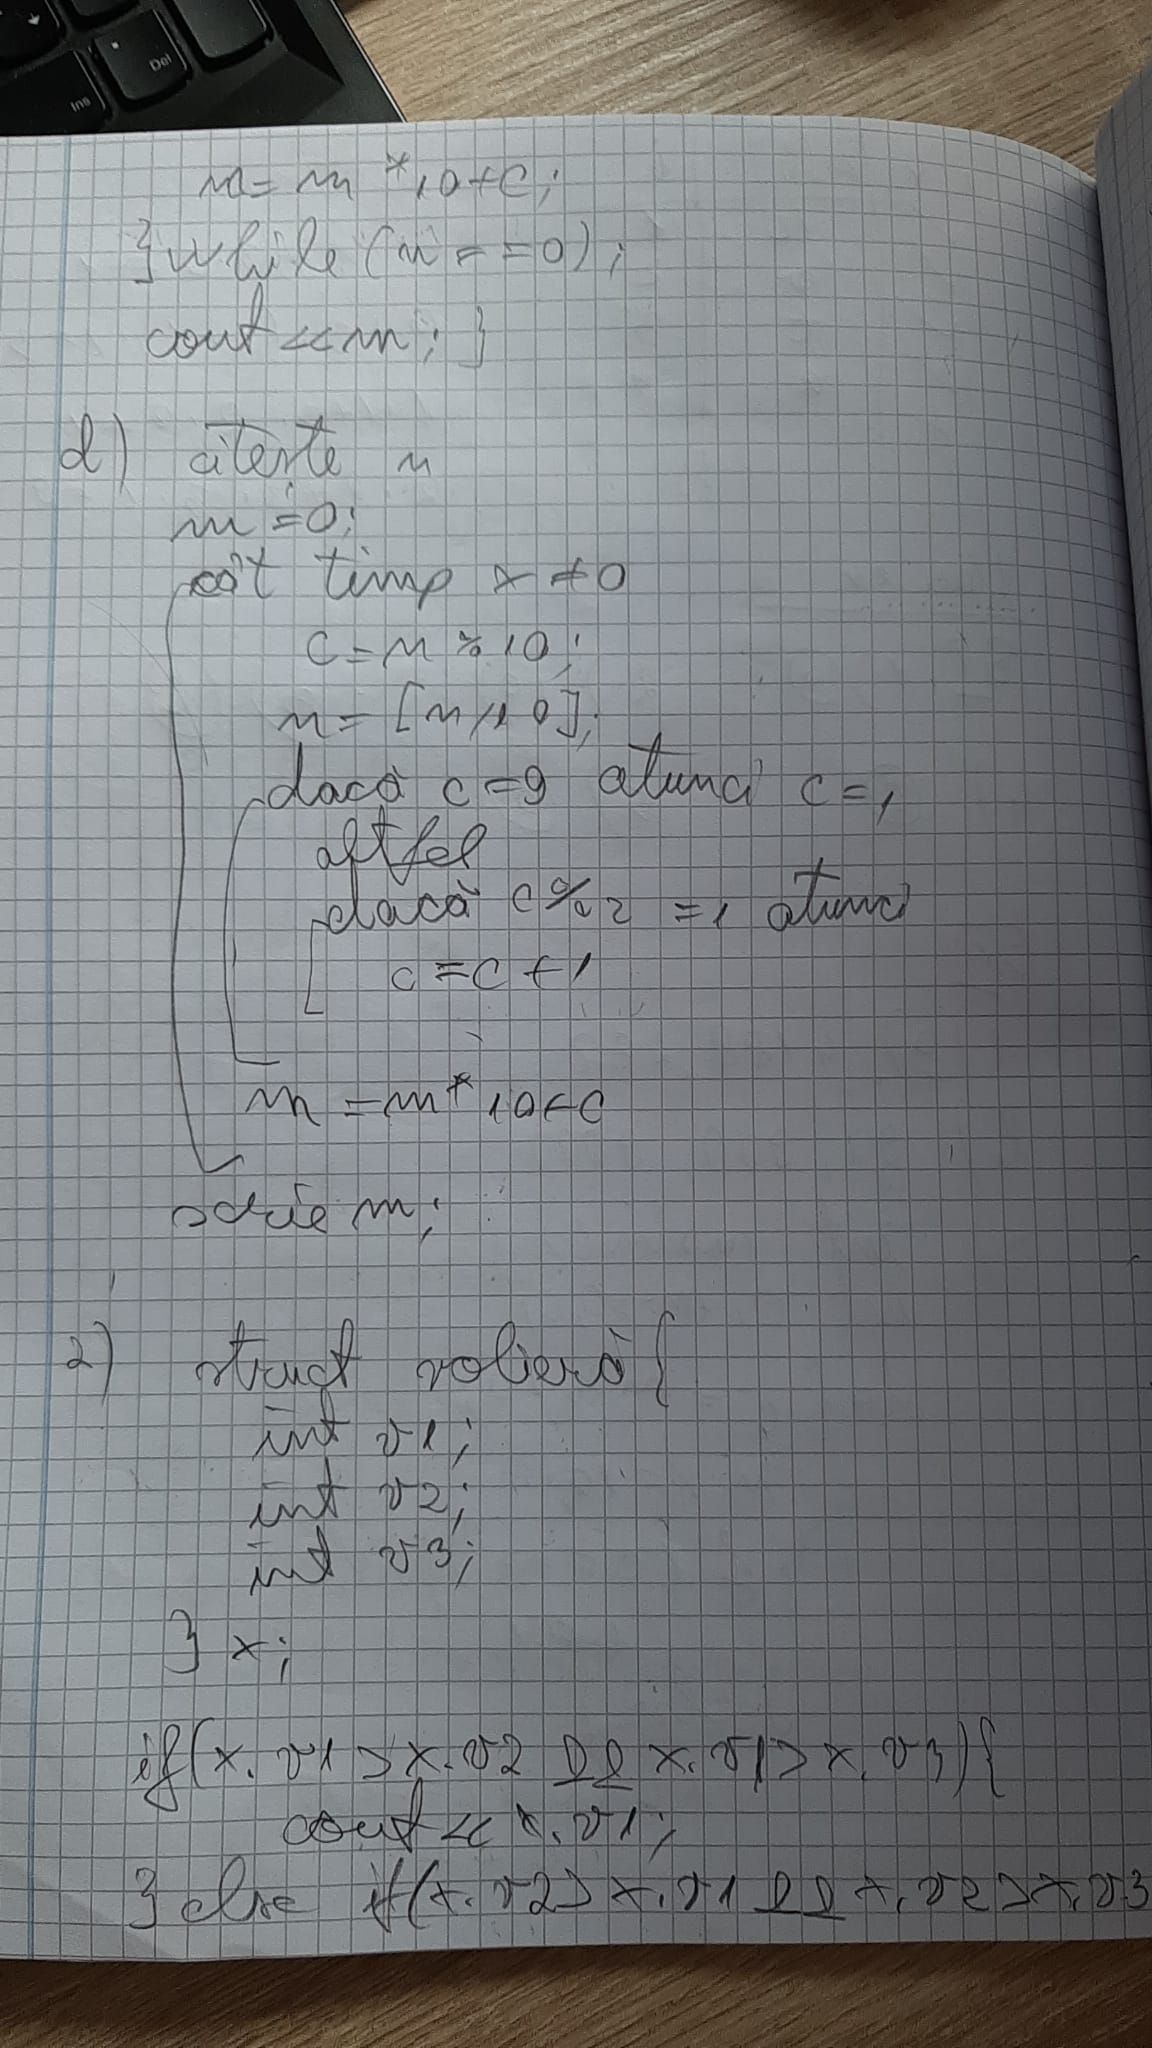 Del
Ins
m = m * 10 + c;
} while (n == 0);
cout << m; }
d) citește n
m = 0;
cât timp x ≠ 0
c = n % 10;
n = [n/10];
dacă c = 9 atunci c = 1
altfel
dacă c % 2 = 1 atunci
c = c + 1
m = m * 10 + c
scrie m;
2) struct volieră {
int v1;
int v2;
int v3;
} x;
if (x.v1 > x.v2 && x.v1 > x.v3) {
cout << x.v1;
} else if (x.v2 > x.v1 && x.v2 > x.v3